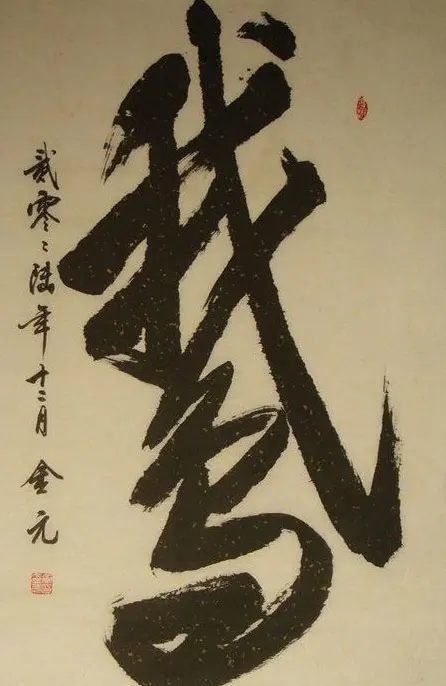 鵞
貳零〻陸年十二月 金元